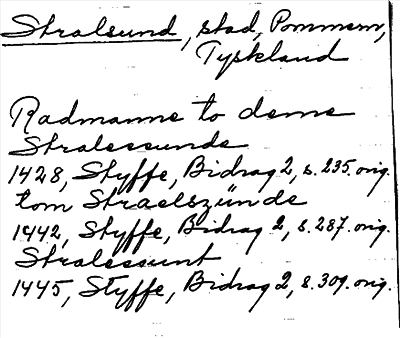 Stralsund, stad, Pommern,
Tyskland
Radmanne to deme
Stralessunde
1428, Styffe, Bidrag 2, s. 235. orig.
tom Straelszünde
1442, Styffe, Bidrag 2, s. 287. orig.
Stralessunt
1445, Styffe, Bidrag 2, s. 309. orig.